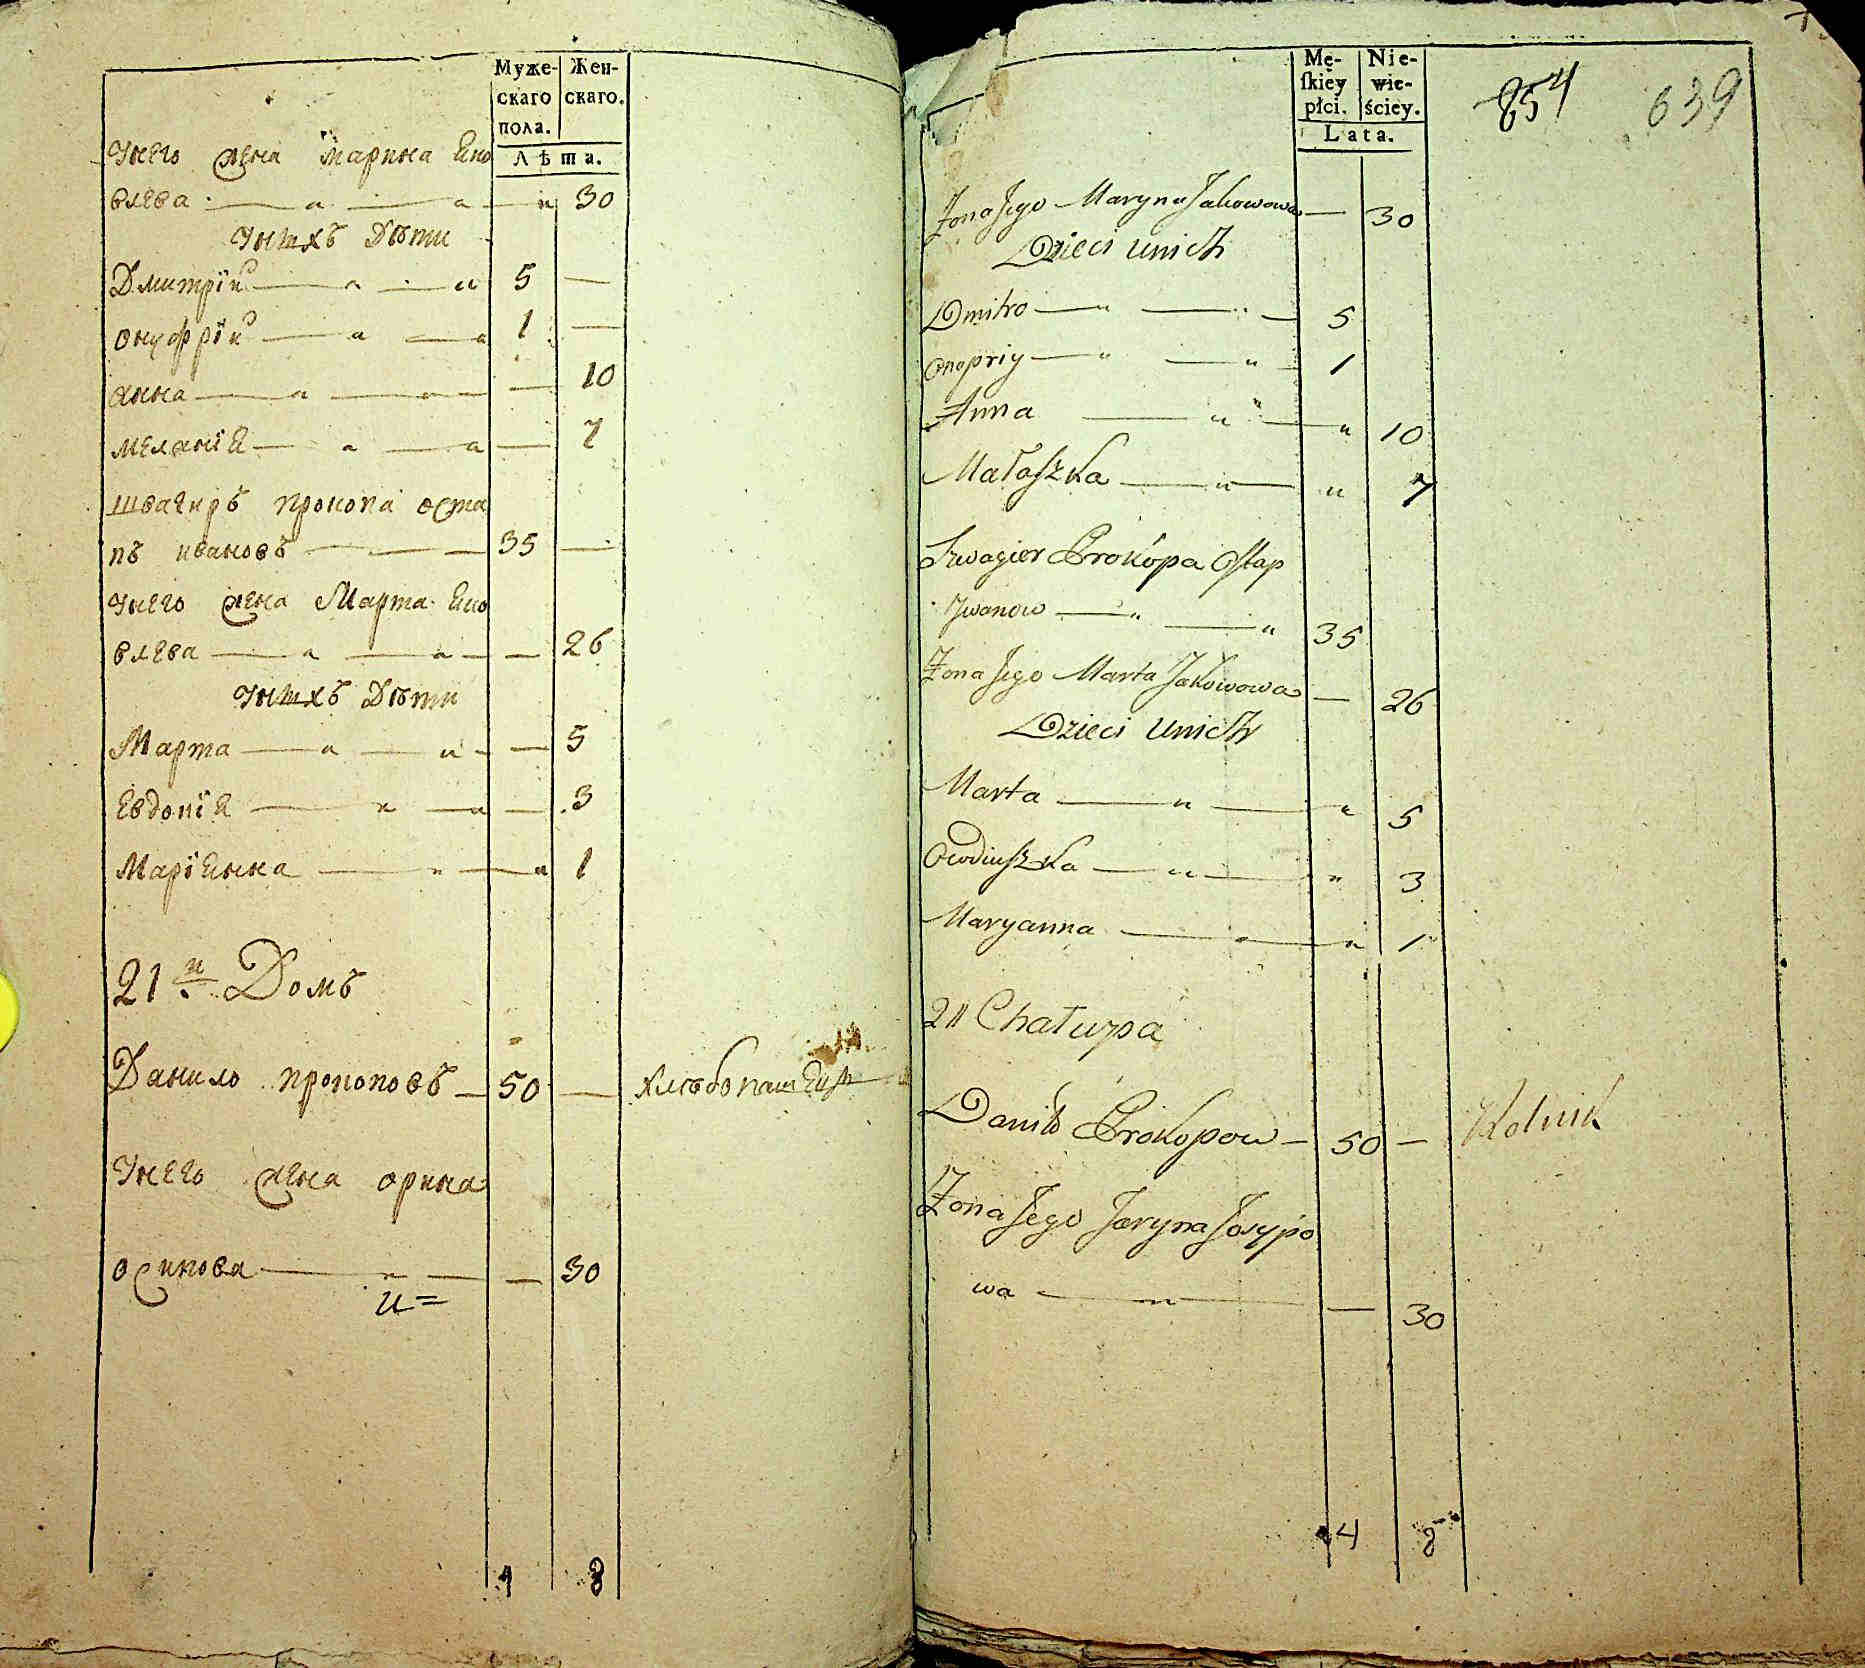 Муже- Жен-
скаго скаго.
пола.
Лѣта.
Унего жена Марина Яко
влева 30
Унихъ Дѣти
Дмитрій 5 —
Онуфрій 1 —
Анна — 10
Меланія — 7
Швагиръ Прокопа Оста
пъ Ивановъ 35 —
Унего жена Марта Яко
влева — 26
Унихъ Дѣти
Марта — 5
Евдокія — 3
Маріянна 1
21й Домъ
Данило Прокоповъ 50 — хлѣбопашецъ
Унего жена Орина
Осипова — 30
4 8
Mę- Nie-
skiey wie-
płci. ściey.
Lata.
854 639
Zona Jego Maryna Jakowowa — 30
Dzieci unich
Dmitro 5
Onopriy 1
Anna 10
Małaszka 7
Szwagier Prokopa Ostap
Jwanow 35
Zona Jego Marta Jakowowa — 26
Dzieci unich
Marta 5
Owdiuszka 3
Maryanna 1
21 Chałupa
Daniło Prokopow 50 — Rolnik
Zona Jego Jaryna Josypo
wa — 30
4 8